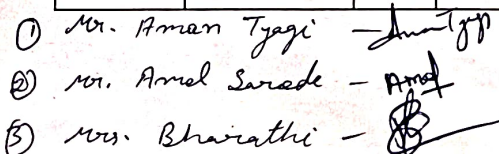 ① Mr. Aman Tyagi - Aman Tyagi
② Mr. Amol Sarode - Amol
③ Mrs. Bharathi -